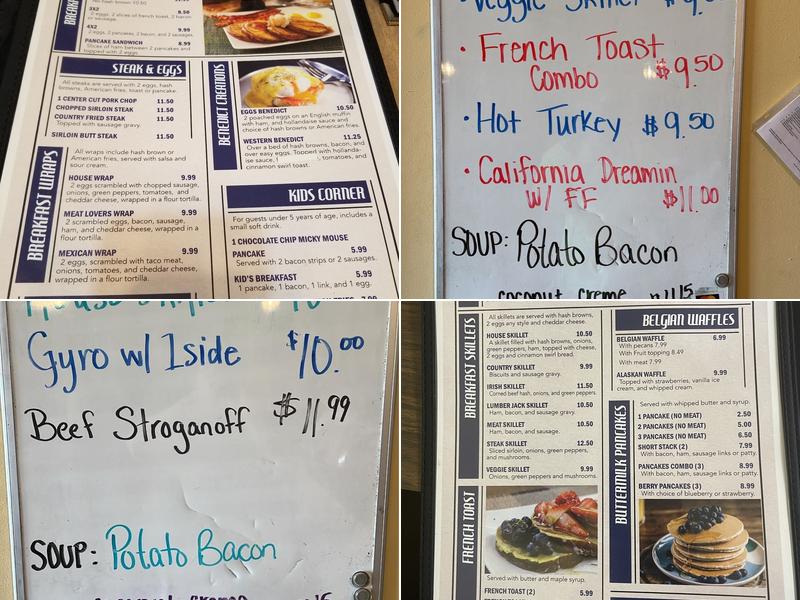 BREAKFAST
3X2 8.50
2 eggs, 2 slices of french toast, 2 bacon
or sausage.
4X2 8.99
2 eggs, 2 pancakes, 2 bacon, and 2 sausages.
PANCAKE SANDWICH 8.99
Slices of ham between 2 pancakes and
topped with 2 eggs.
STEAK & EGGS
All steaks are served with 2 eggs, hash
browns, American fries, toast or pancake.
1 CENTER CUT PORK CHOP 11.50
CHOPPED SIRLOIN STEAK 11.50
COUNTRY FRIED STEAK 11.50
Topped with sausage gravy.
SIRLOIN BUTT STEAK 11.50
BREAKFAST WRAPS
All wraps include hash brown or
American fries, served with salsa and
sour cream.
HOUSE WRAP 9.99
2 eggs scrambled with chopped sausage,
onions, green peppers, tomatoes, and
cheddar cheese, wrapped in a flour tortilla.
MEAT LOVERS WRAP 9.99
2 scrambled eggs, bacon, sausage,
ham, and cheddar cheese, wrapped in a
flour tortilla.
MEXICAN WRAP 9.99
2 eggs, scrambled with taco meat,
onions, tomatoes, and cheddar cheese,
wrapped in a flour tortilla.
BENEDICT CREATIONS
EGGS BENEDICT 10.50
2 poached eggs on an English muffin
with ham, and hollandaise sauce and
choice of hash browns or American fries.
WESTERN BENEDICT 11.25
Over a bed of hash browns, bacon, and
over easy eggs. Topped with hollanda-
ise sauce, tomatoes, and
cinnamon swirl toast.
KIDS CORNER
For guests under 5 years of age, includes a
small soft drink.
1 CHOCOLATE CHIP MICKY MOUSE
PANCAKE 5.99
Served with 2 bacon strips or 2 sausages.
KID'S BREAKFAST 5.99
1 pancake, 1 bacon, 1 link, and 1 egg.
• Veggie Skillet
• French Toast
Combo $9.50
• Hot Turkey $9.50
• California Dreamin
W/ FF $11.00
SOUP: Potato Bacon
coconut creme
Gyro w/ 1side $10.00
Beef Stroganoff $11.99
SOUP: Potato Bacon
BREAKFAST SKILLETS
All skillets are served with hash browns,
2 eggs any style and cheddar cheese.
HOUSE SKILLET 10.50
A skillet filled with hash browns, onions,
green peppers, ham, topped with cheese,
2 eggs and cinnamon swirl bread.
COUNTRY SKILLET 9.99
Biscuits and sausage gravy.
IRISH SKILLET 11.50
Corned beef hash, onions, and green peppers.
LUMBER JACK SKILLET 10.50
Ham, bacon, and sausage gravy.
MEAT SKILLET 10.50
Ham, bacon, and sausage.
STEAK SKILLET 12.50
Sliced sirloin, onions, green peppers,
and mushrooms.
VEGGIE SKILLET 9.99
Onions, green peppers and mushrooms.
FRENCH TOAST
Served with butter and maple syrup.
FRENCH TOAST (2) 5.99
BELGIAN WAFFLES
BELGIAN WAFFLE 6.99
With pecans 7.99
With Fruit topping 8.49
With meat 7.99
ALASKAN WAFFLE 9.99
Topped with strawberries, vanilla ice
cream, and whipped cream.
BUTTERMILK PANCAKES
Served with whipped butter and syrup.
1 PANCAKE (NO MEAT) 2.50
2 PANCAKES (NO MEAT) 5.00
3 PANCAKES (NO MEAT) 6.50
SHORT STACK (2) 7.99
With bacon, ham, sausage links or patty.
PANCAKES COMBO (3) 8.99
With bacon, ham, sausage links or patty.
BERRY PANCAKES (3) 8.99
With choice of blueberry or strawberry.